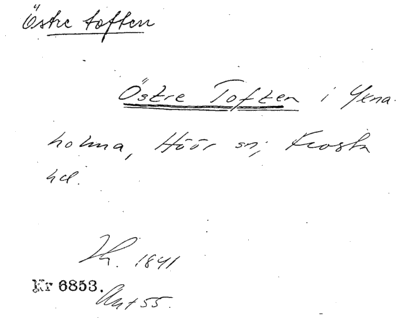 Östre toften
Östre Toften i Yxna
holma, Höör sn; Frosta
hd.
1841
Kr 6853.
Akt 55.